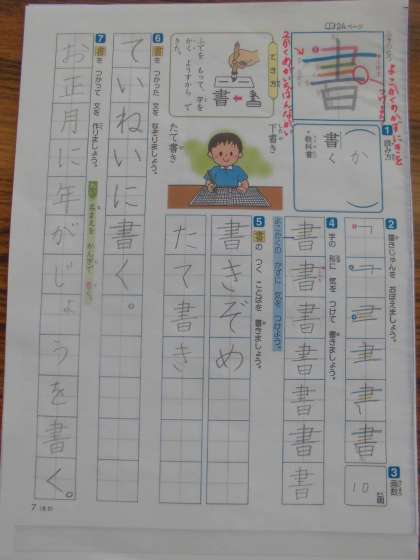 24ページ
よこかくのかずにきを
つけよう
2かくめがいちばんながい
書
1 読み方
か
書く
・教科書
でき方
ふでを もって、字を
かく ようすから で
きた。
書
下書き
たて書き
2 書きじゅんを おぼえましょう。
書
3 画数
10画
4 字の 形に 気を つけて 書きましょう。
よこかくの かずに 気を つけよう。
書書書書書書書
5 書の つく ことばを 書きましょう。
書きぞめ
たて書き
6 書を つかった 文を なぞりましょう。
ていねいに書く。
7 書を つかって 文を 作りましょう。
お正月に年がじょうを書く。
7